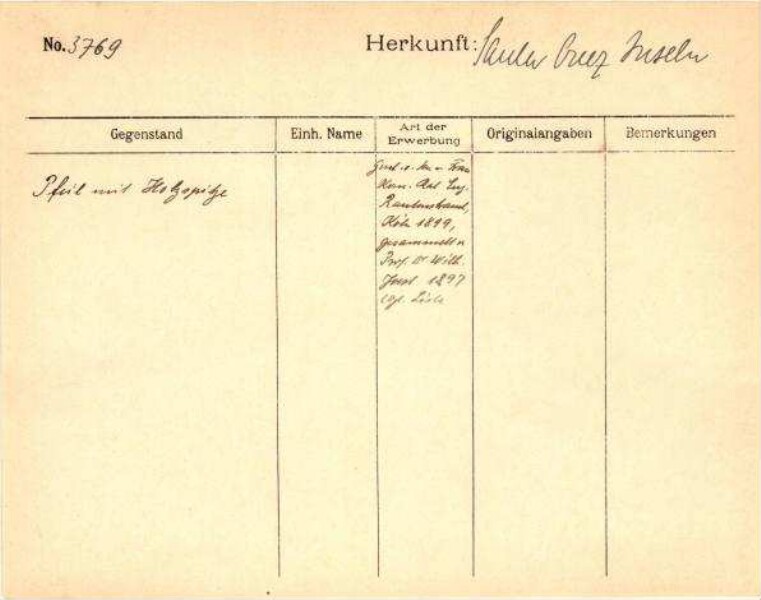 No. 3769
Herkunft: Santa Cruz Inseln
Gegenstand
Einh. Name
Art der Erwerbung
Originalangaben
Bemerkungen
Pfeil mit Holzspitze
Frau
Rautenstrauch,
Köln 1899,
gesammelt v.
Prof. Dr Wilh.
Joest 1897
vgl. Liste